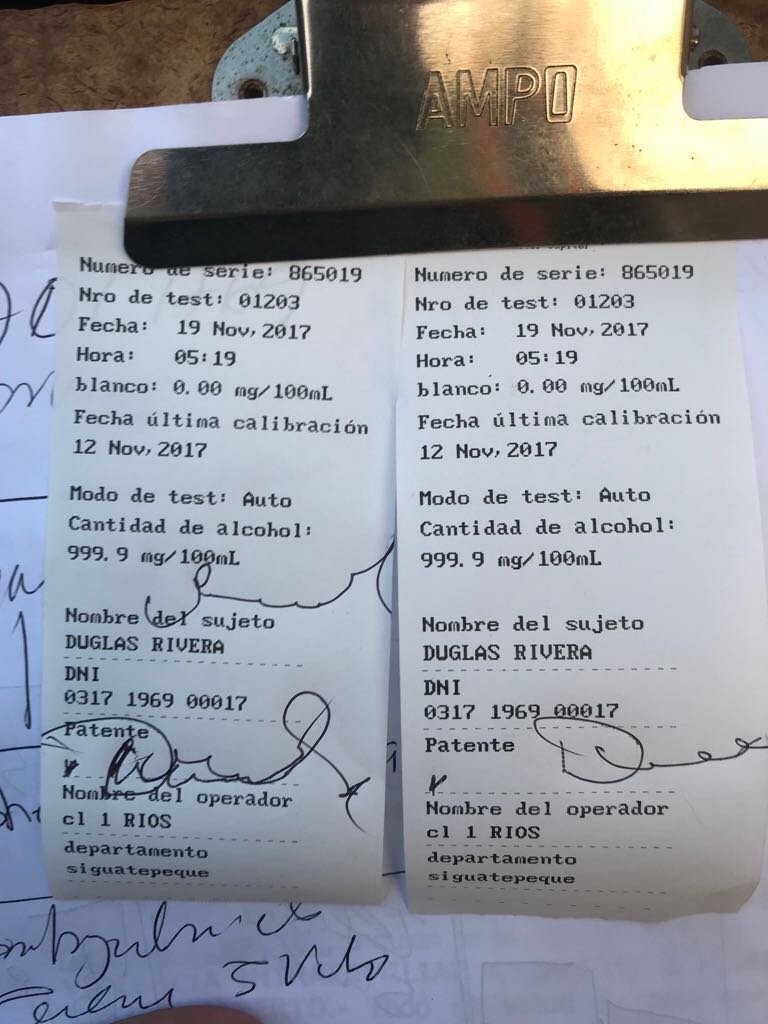 AMPO
Numero de serie: 865019
Nro de test: 01203
Fecha: 19 Nov, 2017
Hora: 05:19
blanco: 0.00 mg/100mL
Fecha última calibración
12 Nov, 2017
Modo de test: Auto
Cantidad de alcohol:
999.9 mg/100mL
Nombre del sujeto
DUGLAS RIVERA
DNI
0317 1969 00017
Patente
Nombre del operador
cl 1 RIOS
departamento
siguatepeque
Numero de serie: 865019
Nro de test: 01203
Fecha: 19 Nov, 2017
Hora: 05:19
blanco: 0.00 mg/100mL
Fecha última calibración
12 Nov, 2017
Modo de test: Auto
Cantidad de alcohol:
999.9 mg/100mL
Nombre del sujeto
DUGLAS RIVERA
DNI
0317 1969 00017
Patente
Nombre del operador
cl 1 RIOS
departamento
siguatepeque